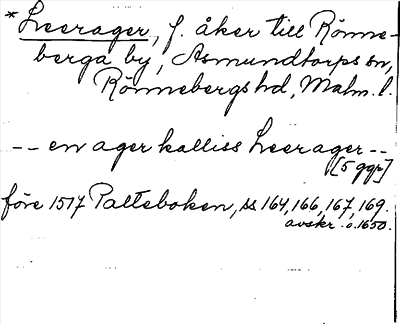 * Leerager, f. åker till Rönne-
berga by, Asmundtorps sn,
Rönnebergs hd, Malm. l.
-- en ager kalliss Leerager --
[5 ggr]
före 1517 Palteboken, ss 164, 166, 167, 169.
avskr. o. 1650.